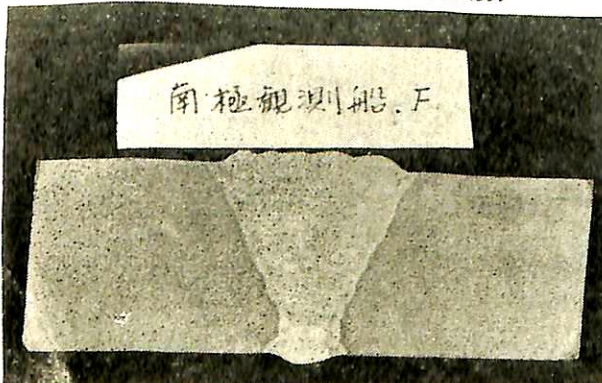 南極観測船.F.